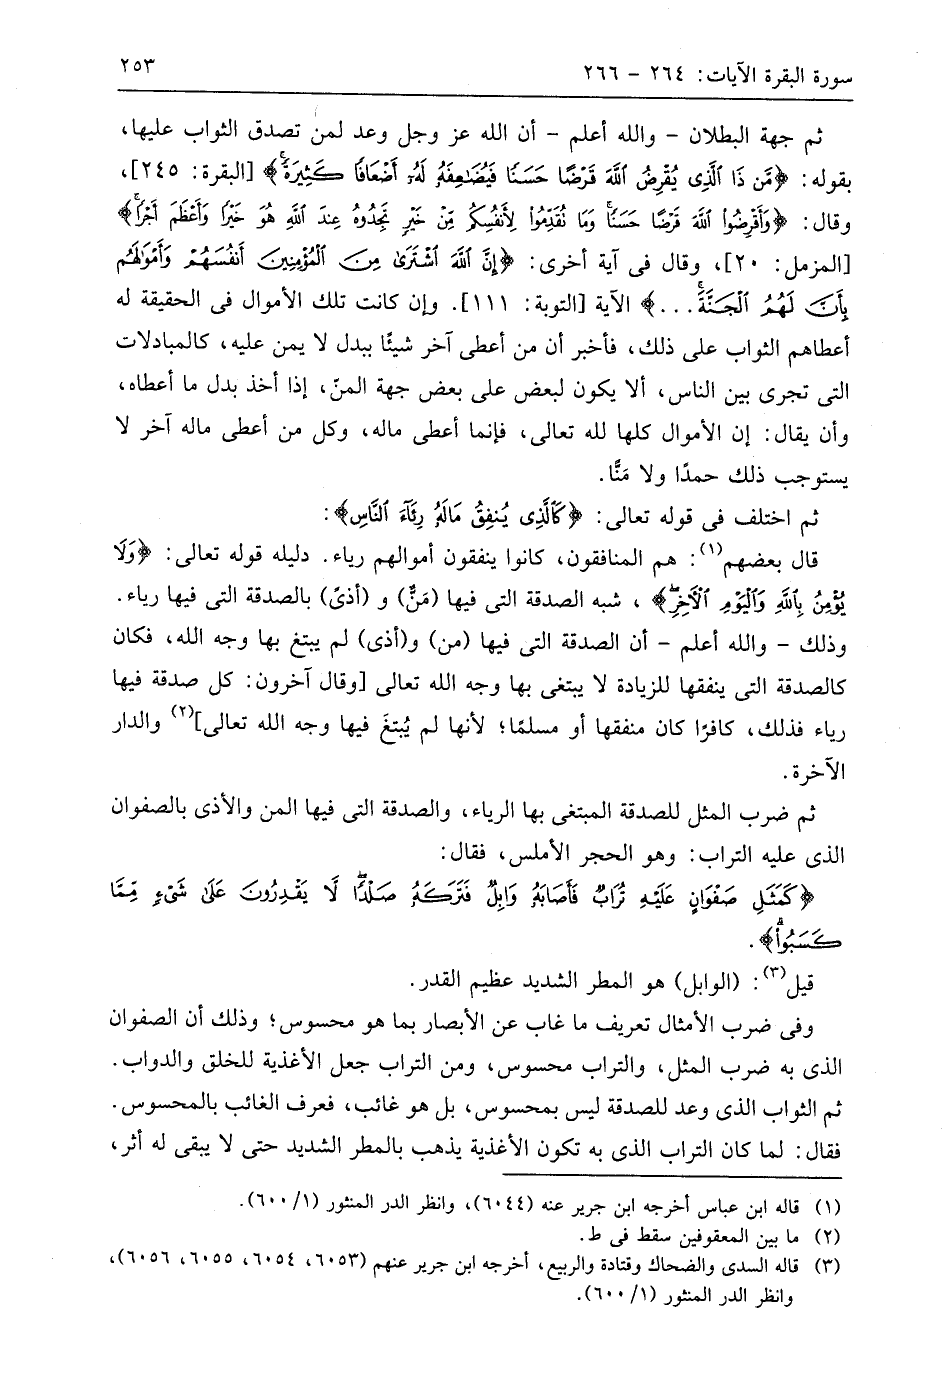 سورة البقرة الآيات: ٢٦٤ - ٢٦٦
٢٥٣
ثم جهة البطلان - والله أعلم - أن الله عز وجل وعد لمن تصدق الثواب عليها،
بقوله: ﴿مَّن ذَا ٱلَّذِى يُقْرِضُ ٱللَّهَ قَرْضًا حَسَنًا فَيُضَٰعِفَهُۥ لَهُۥٓ أَضْعَافًا كَثِيرَةً﴾ [البقرة: ٢٤٥]،
وقال: ﴿وَأَقْرِضُوا۟ ٱللَّهَ قَرْضًا حَسَنًا وَمَا تُقَدِّمُوا۟ لِأَنفُسِكُم مِّنْ خَيْرٍ تَجِدُوهُ عِندَ ٱللَّهِ هُوَ خَيْرًا وَأَعْظَمَ أَجْرًا﴾
[المزمل: ٢٠]، وقال فى آية أخرى: ﴿إِنَّ ٱللَّهَ ٱشْتَرَىٰ مِنَ ٱلْمُؤْمِنِينَ أَنفُسَهُمْ وَأَمْوَٰلَهُم
بِأَنَّ لَهُمُ ٱلْجَنَّةَ...﴾ الآية [التوبة: ١١١]. وإن كانت تلك الأموال فى الحقيقة له
أعطاهم الثواب على ذلك، فأخبر أن من أعطى آخر شيئًا ببدل لا يمن عليه، كالمبادلات
التى تجرى بين الناس، ألا يكون لبعض على بعض جهة المنّ، إذا أخذ بدل ما أعطاه،
وأن يقال: إن الأموال كلها لله تعالى، فإنما أعطى ماله، وكل من أعطى ماله آخر لا
يستوجب ذلك حمدًا ولا مَنًّا.
ثم اختلف فى قوله تعالى: ﴿كَٱلَّذِى يُنفِقُ مَالَهُۥ رِئَآءَ ٱلنَّاسِ﴾:
قال بعضهم(١): هم المنافقون، كانوا ينفقون أموالهم رياء. دليله قوله تعالى: ﴿وَلَا
يُؤْمِنُ بِٱللَّهِ وَٱلْيَوْمِ ٱلْءَاخِرِ﴾، شبه الصدقة التى فيها (مَنٌّ) و (أذىً) بالصدقة التى فيها رياء.
وذلك - والله أعلم - أن الصدقة التى فيها (من) و(أذى) لم يبتغ بها وجه الله، فكان
كالصدقة التى ينفقها للزيادة لا يبتغى بها وجه الله تعالى [وقال آخرون: كل صدقة فيها
رياء فذلك، كافرًا كان منفقها أو مسلمًا؛ لأنها لم يُبتغَ فيها وجه الله تعالى](٢) والدار
الآخرة.
ثم ضرب المثل للصدقة المبتغى بها الرياء، والصدقة التى فيها المن والأذى بالصفوان
الذى عليه التراب: وهو الحجر الأملس، فقال:
﴿كَمَثَلِ صَفْوَانٍ عَلَيْهِ تُرَابٌ فَأَصَابَهُۥ وَابِلٌ فَتَرَكَهُۥ صَلْدًا لَّا يَقْدِرُونَ عَلَىٰ شَىْءٍ مِّمَّا
كَسَبُوا۟﴾.
قيل(٣): (الوابل) هو المطر الشديد عظيم القدر.
وفى ضرب الأمثال تعريف ما غاب عن الأبصار بما هو محسوس؛ وذلك أن الصفوان
الذى به ضرب المثل، والتراب محسوس، ومن التراب جعل الأغذية للخلق والدواب.
ثم الثواب الذى وعد للصدقة ليس بمحسوس، بل هو غائب، فعرف الغائب بالمحسوس.
فقال: لما كان التراب الذى به تكون الأغذية يذهب بالمطر الشديد حتى لا يبقى له أثر،
(١) قاله ابن عباس أخرجه ابن جرير عنه (٦٠٤٤)، وانظر الدر المنثور (٦٠٠/١).
(٢) ما بين المعقوفين سقط فى ط.
(٣) قاله السدى والضحاك وقتادة والربيع، أخرجه ابن جرير عنهم (٦٠٥٣، ٦٠٥٤، ٦٠٥٥، ٦٠٥٦)،
وانظر الدر المنثور (٦٠٠/١).